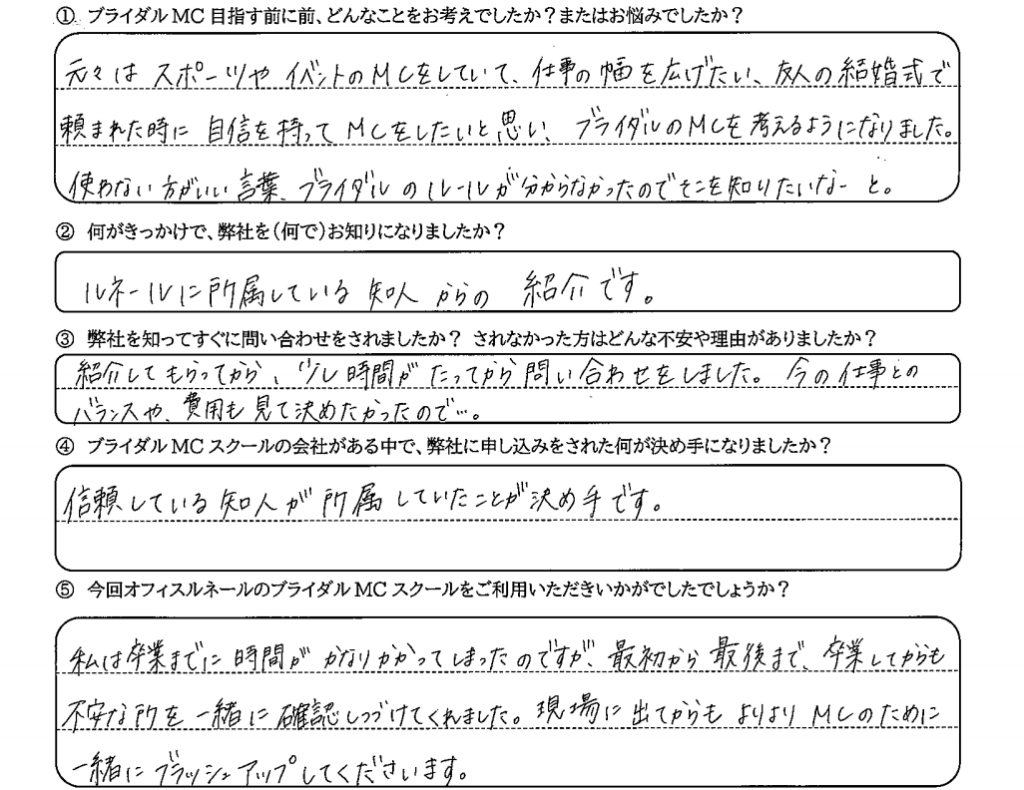 ① ブライダルMC目指す前に前、どんなことをお考えでしたか？またはお悩みでしたか？
元々は スポーツや イベントのMCをしていて、仕事の幅を広げたい、友人の結婚式で
頼まれた時に 自信を持って MCをしたいと思い、ブライダルのMCを考えるようになりました。
使わない方がいい言葉、ブライダルのルールが分からなかったのでそこを知りたいなーと。
② 何がきっかけで、弊社を（何で）お知りになりましたか？
ルネールに所属している知人からの 紹介です。
③ 弊社を知ってすぐに問い合わせをされましたか？ されなかった方はどんな不安や理由がありましたか？
紹介してもらってから、少し時間がたってから問い合わせをしました。今の仕事との
バランスや、費用も見て決めたかったので…。
④ ブライダルMCスクールの会社がある中で、弊社に申し込みをされた何が決め手になりましたか？
信頼している知人が所属していたことが決め手です。
⑤ 今回オフィスルネールのブライダルMCスクールをご利用いただきいかがでしたでしょうか？
私は卒業までに時間がかなりかかってしまったのですが、最初から最後まで、卒業してからも
不安な所を一緒に確認しつづけてくれました。現場に出てからもよりよりMCのために
一緒にブラッシュアップしてくださいます。